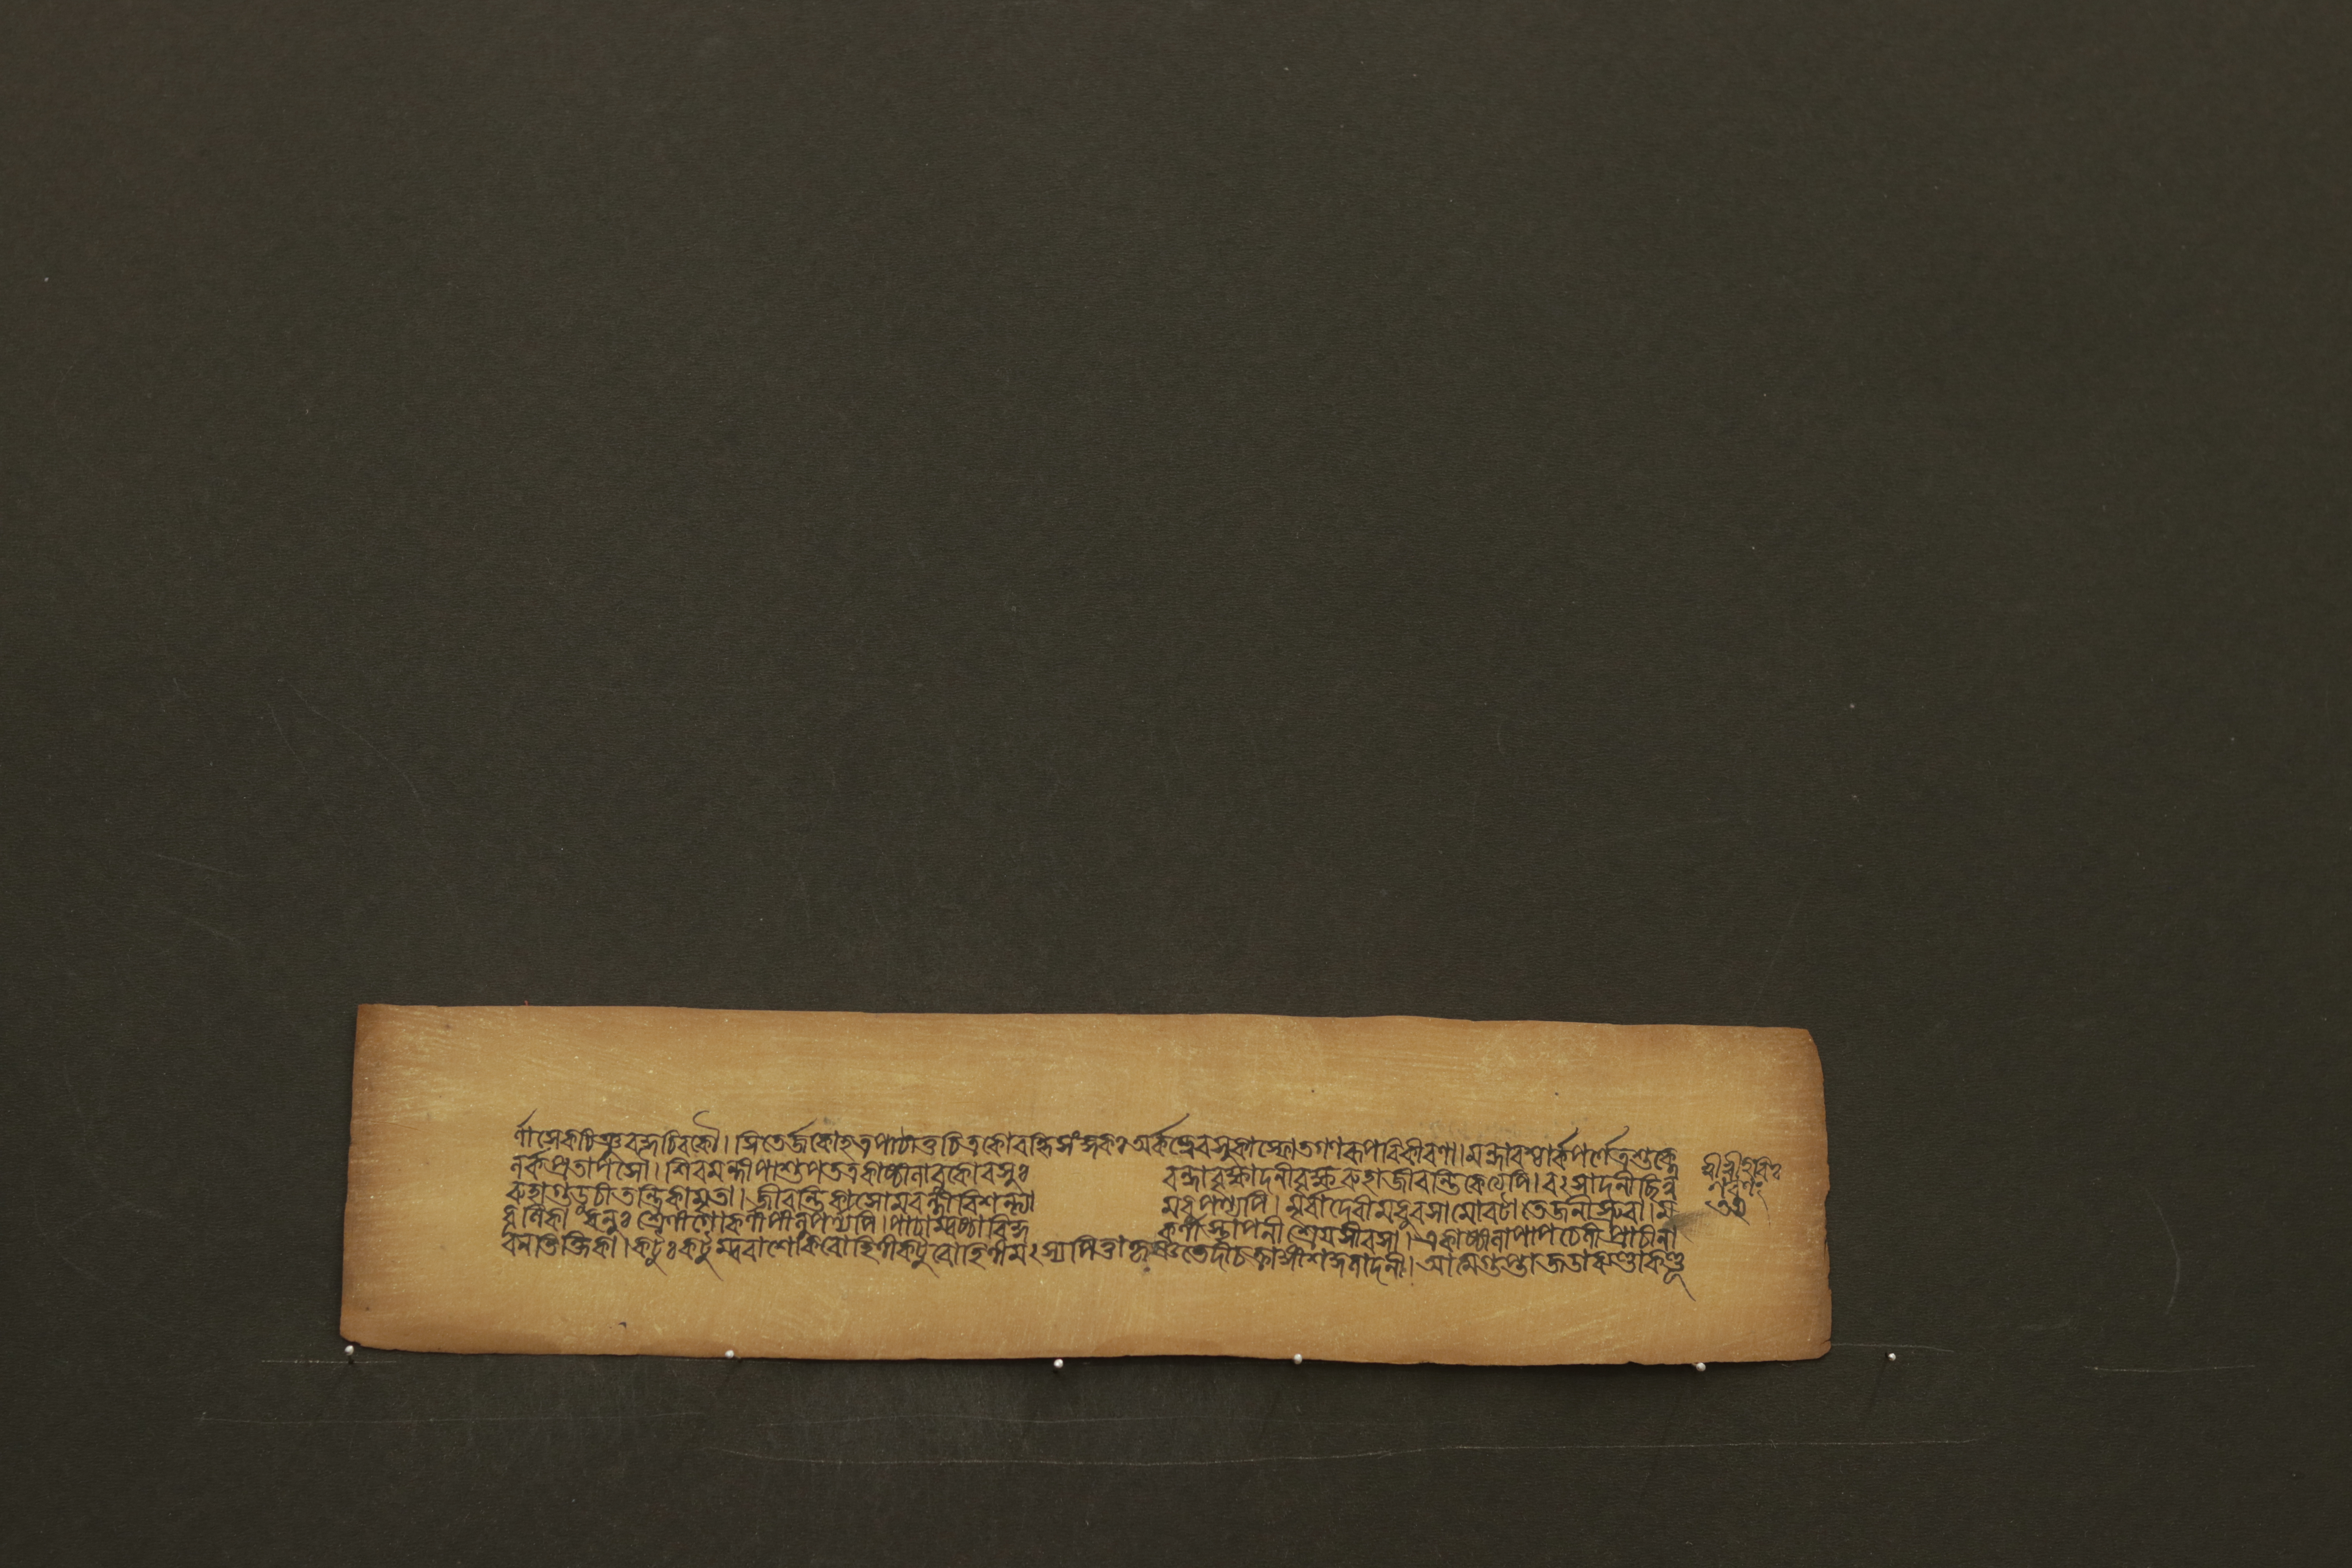 র্ণাসেকঠিঞ্জরকঠেরকৌ। সিতের্জকোহত্রপাঠীতুচিত্রকোবহ্নিসংজ্ঞকঃ অর্কাহ্বেবসুকাস্ফোতগণরূপবিকীরণা। মন্দারশ্চার্কপর্ণোত্রশুক্লে
লর্কপ্রতাপসৌ। শিবমল্লীপাশুপতত্রকাষ্ঠীলাবুকোবসুঃ বন্দাবৃক্ষাদনীবৃক্ষরুহাজীবন্তিকেত্যপি। বৎসাদনীছিন্ন
রুহাগুড়ুচীতন্ত্রিকামৃতা। জীবন্তিকাসোমবল্লীবিশল্যা মধুপর্ণ্যপি। মূর্বাদেবীমধুরসামোরটা তেজনীস্রুবা। ম
ধূলিকা ধনুঃ শ্রেণীগোকর্ণীপীলুপর্ণ্যপি। পাঠাম্বষ্ঠাবিদ্ধ কর্ণীস্থাপনী শ্রেয়সীরসা। একাষ্ঠীলাপাপচেলীপ্রাচীনা
বনতিক্তিকা। কটুঃ কটুম্ভরাশোকরোহিণীকটুরোহিণীমৎস্যপিত্তাকৃষ্ণভেদীচক্রাঙ্গীশকুলাদনী। আত্মগুপ্তাজডাকণ্ডাকণ্ডূ